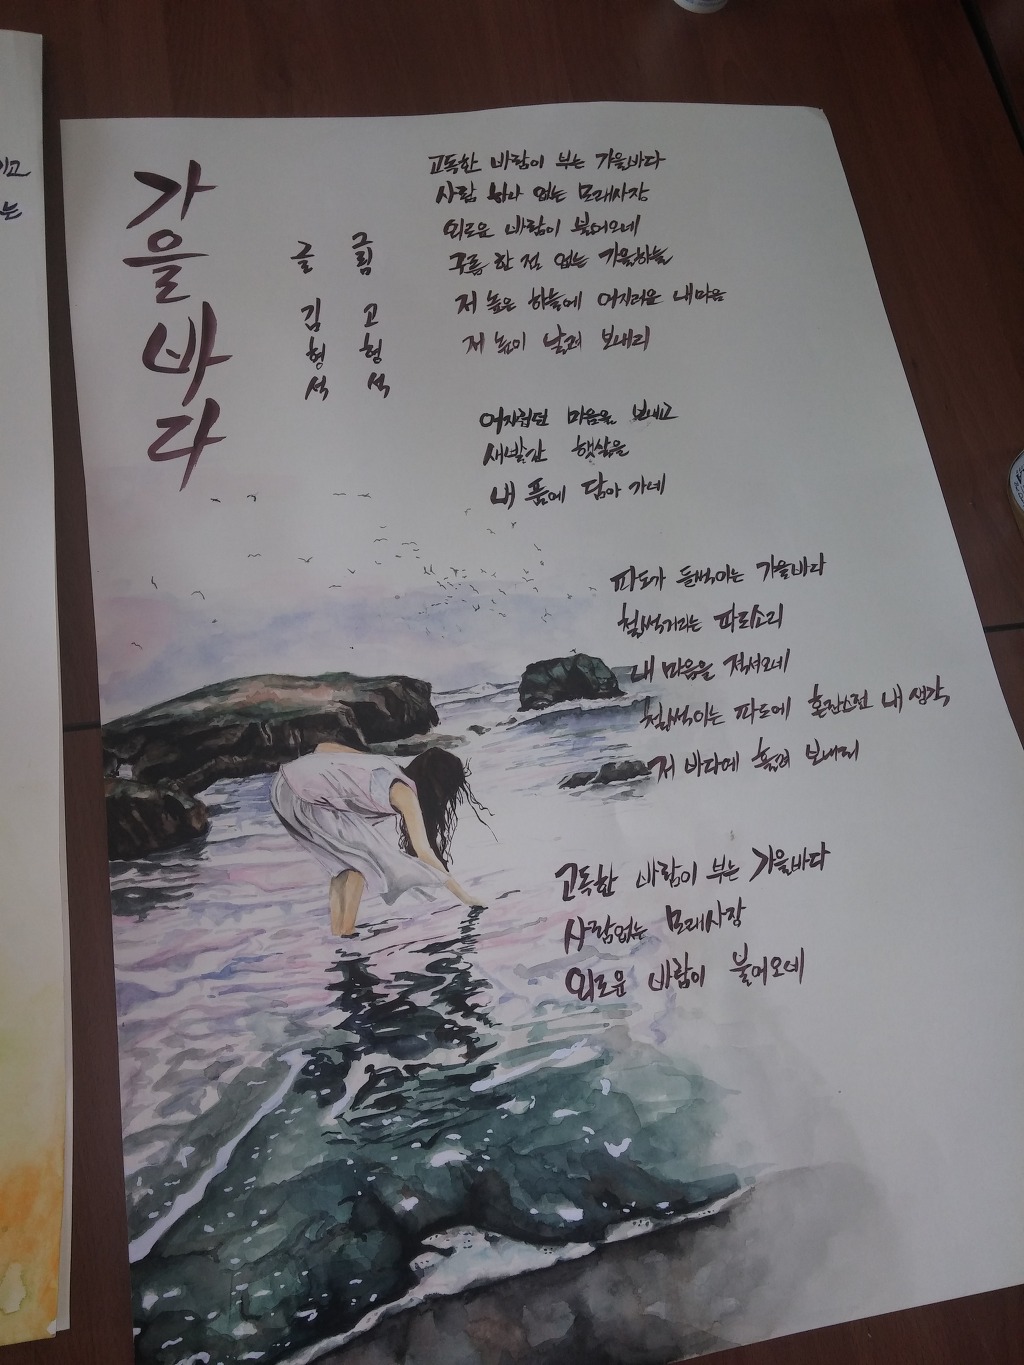 가을바다
글 김형석
그림 고형석
고독한 바람이 부는 가을바다
사람 하나 없는 모래사장
외로운 바람이 불어오네
구름 한 점 없는 가을하늘
저 높은 하늘에 어지러운 내마음
저 높이 날려 보내리
어지럽던 마음을 보내고
새빨간 햇살을
내 품에 담아 가네
파도가 들썩이는 가을바다
철썩거리는 파도소리
내 마음을 적셔오네
철썩이는 파도에 혼란스런 내 생각
저 바다에 흘려 보내리
고독한 바람이 부는 가을바다
사람없는 모래사장
외로운 바람이 불어오네
는